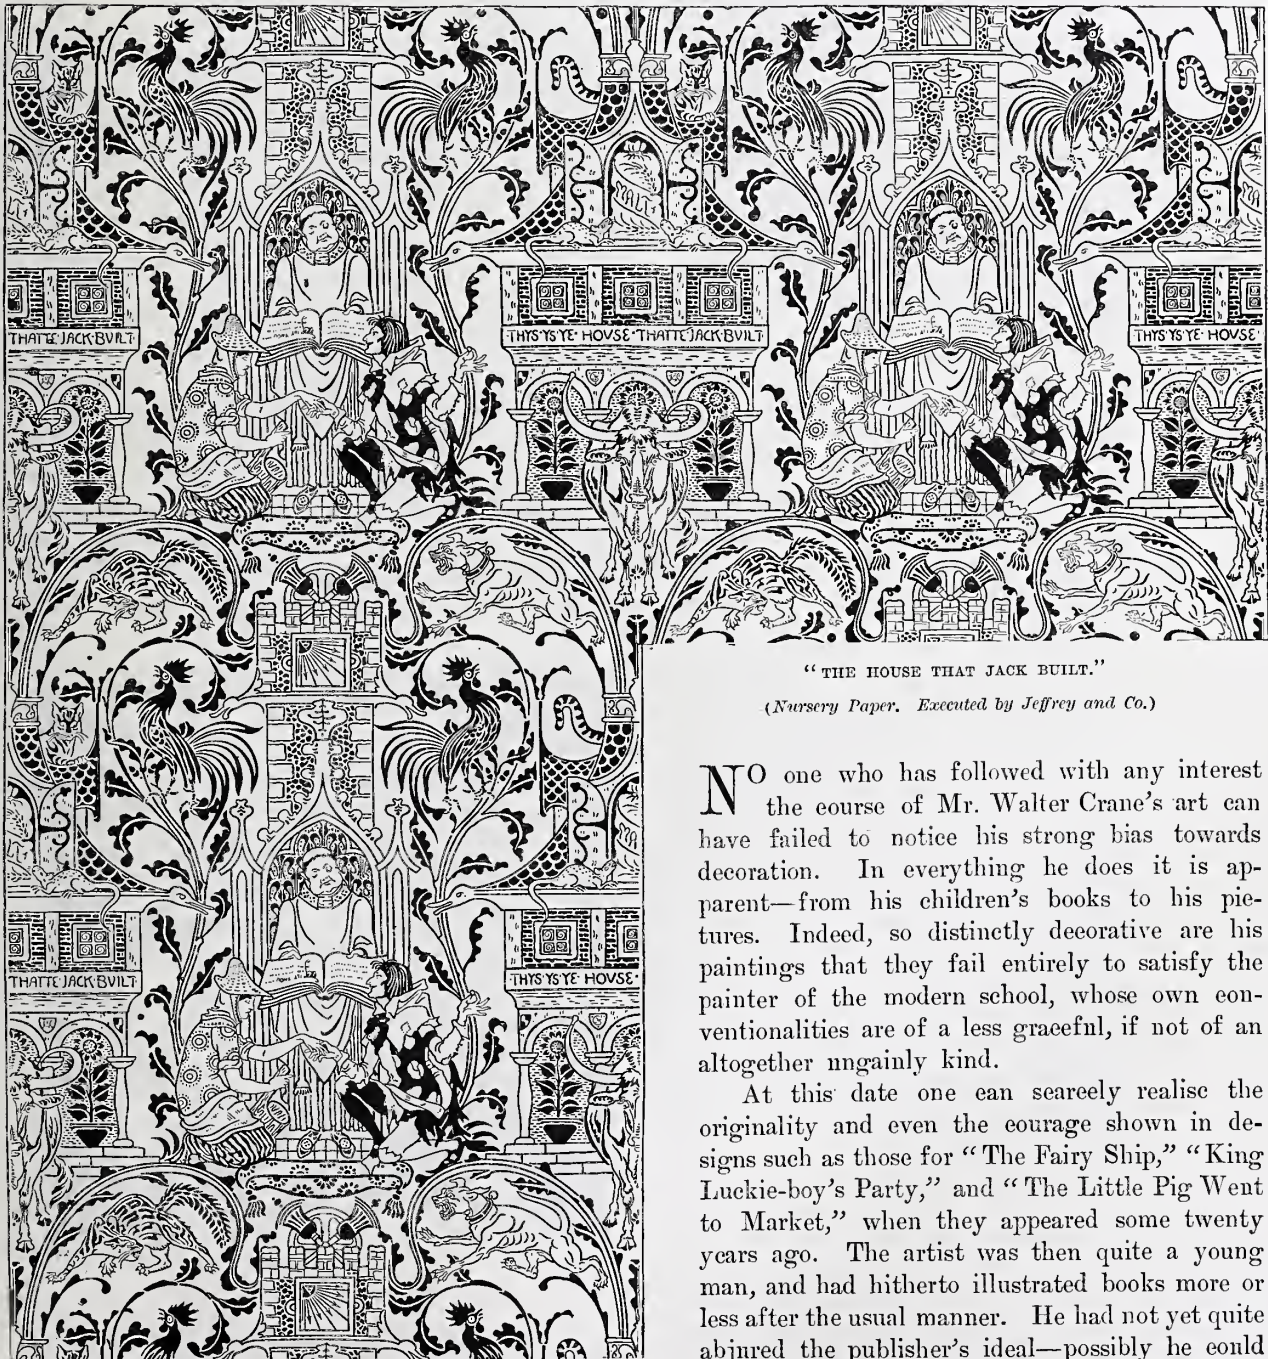 THATTE·JACK·BVILT·
THYS·YS·YE·HOVSE·THATTE·JACK·BVILT
THYS·YS·YE·HOVSE·
THATTE·JACK·BVILT·
THYS·YS·YE·HOVSE·
“THE HOUSE THAT JACK BUILT.”
(Nursery Paper. Executed by Jeffrey and Co.)
NO one who has followed with any interest
the course of Mr. Walter Crane’s art can
have failed to notice his strong bias towards
decoration. In everything he does it is ap-
parent—from his children’s books to his pic-
tures. Indeed, so distinctly decorative are his
paintings that they fail entirely to satisfy the
painter of the modern school, whose own con-
ventionalities are of a less graceful, if not of an
altogether ungainly kind.
At this date one can scarcely realise the
originality and even the courage shown in de-
signs such as those for “The Fairy Ship,” “King
Luckie-boy’s Party,” and “The Little Pig Went
to Market,” when they appeared some twenty
years ago. The artist was then quite a young
man, and had hitherto illustrated books more or
less after the usual manner. He had not yet quite
abjured the publisher’s ideal—possibly he could